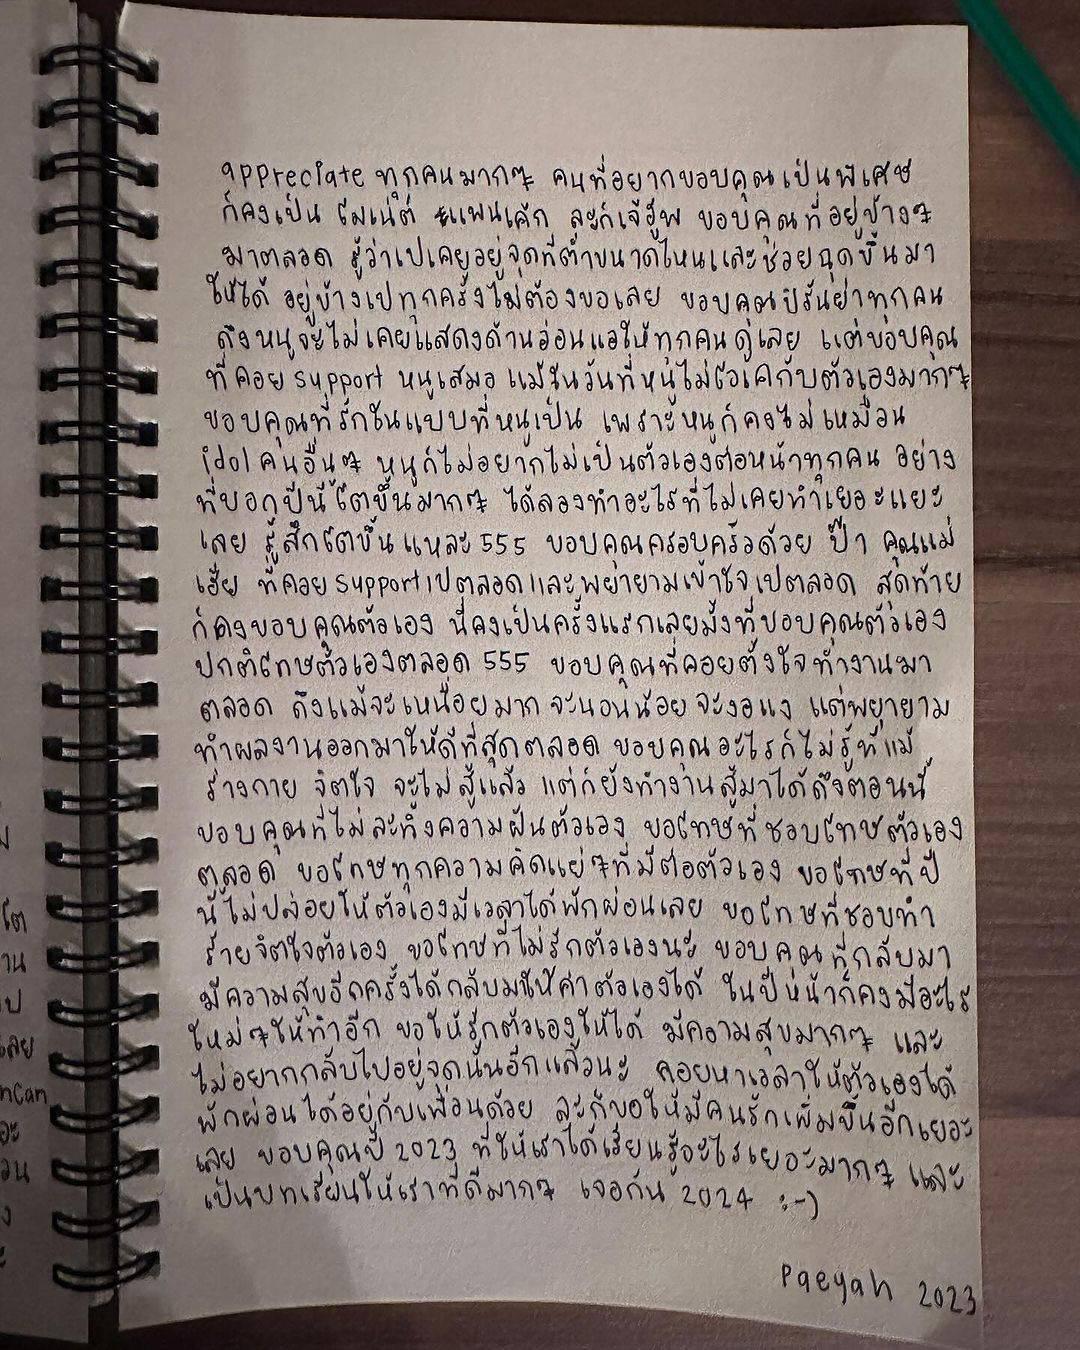 appreciate ทุกคนมากๆ คนที่อยากขอบคุณเป็นพิเศษ
ก็คงเป็น โมเน่ต์ แพนเค้ก ละก็เจ้ฮูพ ขอบคุณที่อยู่ข้างๆ
มาตลอด รู้ว่าเปเคยอยู่จุดที่ต่ำขนาดไหนและช่วยฉุดขึ้นมา
ให้ได้ อยู่ข้างเปทุกครั้งไม่ต้องขอเลย ขอบคุณปิรันย่าทุกคน
ถึงหนูจะไม่เคยแสดงด้านอ่อนแอให้ทุกคนดูเลย แต่ขอบคุณ
ที่คอย support หนูเสมอ แม้ในวันที่หนูไม่โอเคกับตัวเองมากๆ
ขอบคุณที่รักในแบบที่หนูเป็น เพราะหนูก็คงไม่เหมือน
idol คนอื่นๆ หนูก็ไม่อยากไม่เป็นตัวเองต่อหน้าทุกคน อย่าง
ที่บอกปีนี้โตขึ้นมากๆ ได้ลองทำอะไรที่ไม่เคยทำเยอะแยะ
เลย รู้สึกโตขึ้นแหละ 555 ขอบคุณครอบครัวด้วย ป๊า คุณแม่
เฮีย ที่คอย support เปตลอดและพยายามเข้าใจเปตลอด สุดท้าย
ก็คงขอบคุณตัวเอง นี่คงเป็นครั้งแรกเลยมั้งที่ขอบคุณตัวเอง
ปกติโทษตัวเองตลอด 555 ขอบคุณที่คอยตั้งใจทำงานมา
ตลอด ถึงแม้จะเหนื่อยมาก จะนอนน้อย จะงอแง แต่พยายาม
ทำผลงานออกมาให้ดีที่สุดตลอด ขอบคุณอะไรก็ไม่รู้ที่แม้
ร่างกาย จิตใจ จะไม่สู้แล้ว แต่ก็ยังทำงานสู้มาได้ถึงตอนนี้
ขอบคุณที่ไม่ละทิ้งความฝันตัวเอง ขอโทษที่ชอบโทษตัวเอง
ตลอด ขอโทษทุกความคิดแย่ๆที่มีต่อตัวเอง ขอโทษที่ปี
นี้ไม่ปล่อยให้ตัวเองมีเวลาได้พักผ่อนเลย ขอโทษที่ชอบทำ
ร้ายจิตใจตัวเอง ขอโทษที่ไม่รักตัวเองนะ ขอบคุณที่กลับมา
มีความสุขอีกครั้งได้กลับมาให้ค่าตัวเองได้ ในปีหน้าก็คงมีอะไร
ใหม่ๆให้ทำอีก ขอให้รักตัวเองให้ได้ มีความสุขมากๆ และ
ไม่อยากกลับไปอยู่จุดนั้นอีกแล้วนะ คอยหาเวลาให้ตัวเองได้
พักผ่อนได้อยู่กับเพื่อนด้วย ละก็ขอให้มีคนรักเพิ่มขึ้นอีกเยอะ
เลย ขอบคุณปี 2023 ที่ให้เราได้เรียนรู้อะไรเยอะมากๆ และ
เป็นบทเรียนให้เราที่ดีมากๆ เจอกัน 2024 :-)
Paeyah 2023